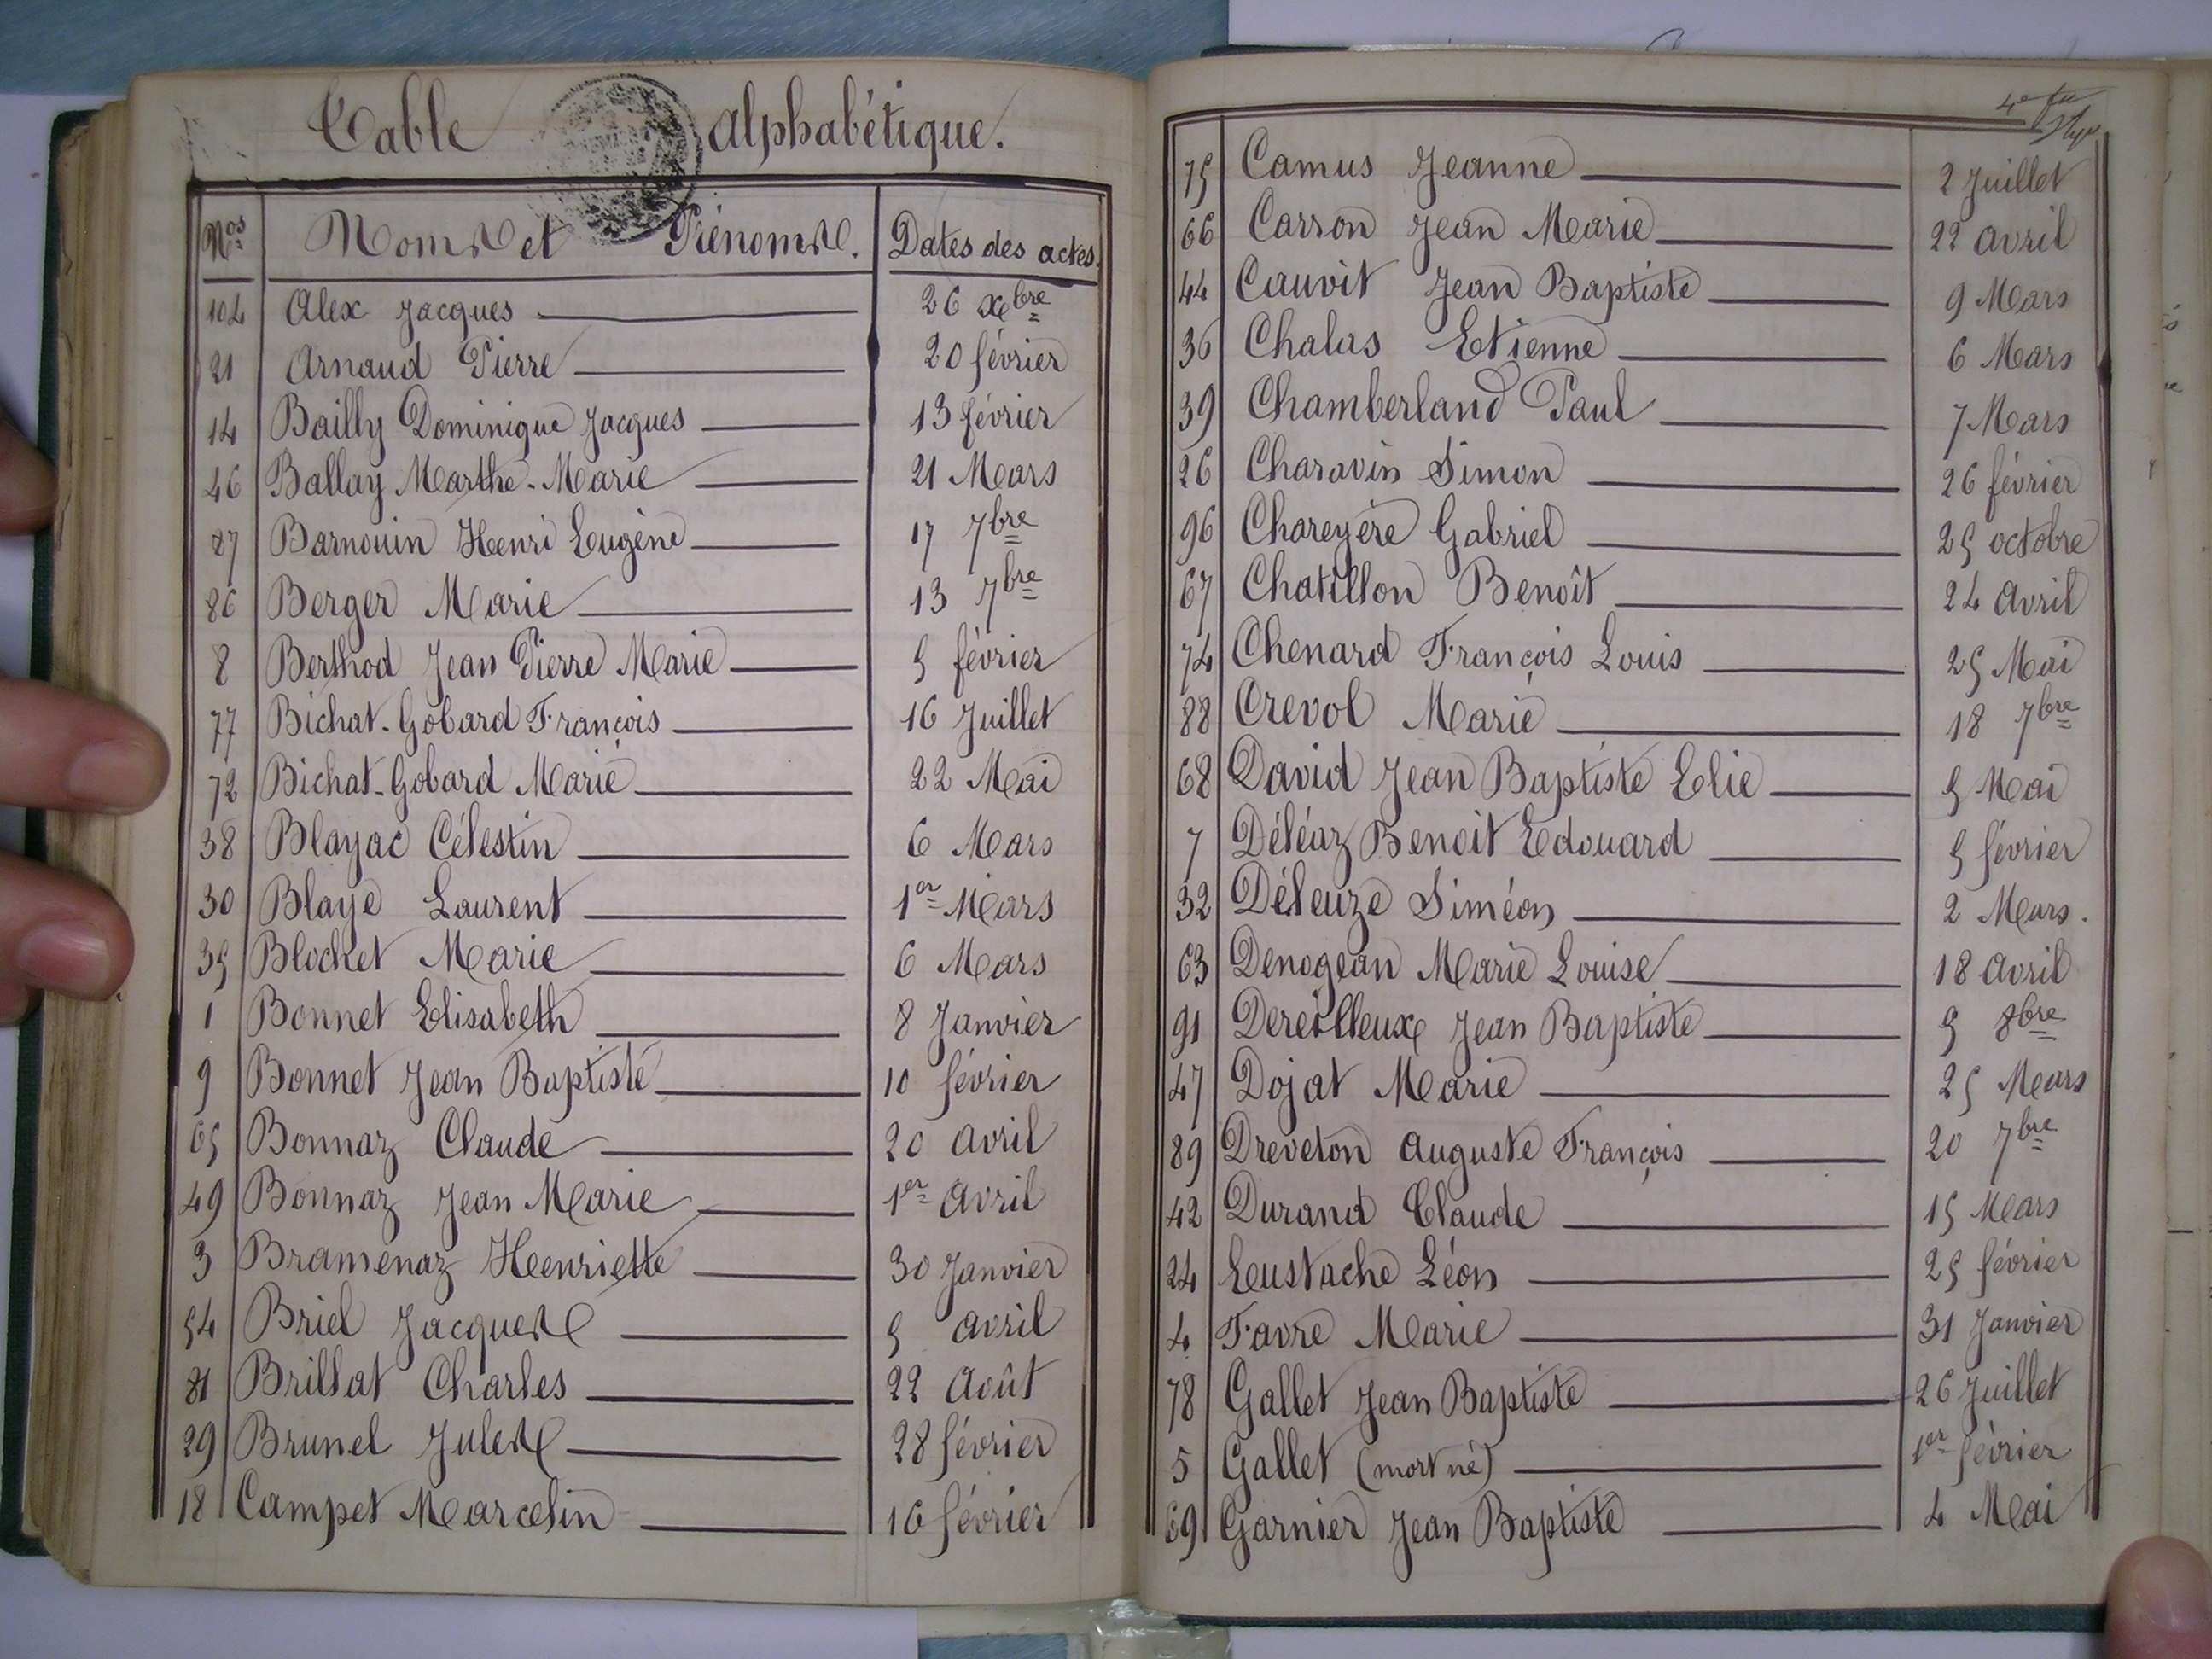 Table alphabétique.
Nos Noms et Prénoms. Dates des actes.
104 Alex Jacques 26 xbre
21 Arnaud Pierre 20 février
14 Bailly Dominique Jacques 13 février
46 Ballay Marthe-Marie 21 Mars
87 Barnouin Henri Eugène 17 7bre
86 Berger Marie 13 7bre
8 Berthod Jean Pierre Marie 5 février
77 Bichat-Gobard François 16 Juillet
72 Bichat-Gobard Marie 22 Mai
38 Blayac Célestin 6 Mars
30 Blaye Laurent 1er Mars
35 Blochet Marie 6 Mars
1 Bonnet Elisabeth 8 Janvier
9 Bonnet Jean Baptiste 10 février
65 Bonnaz Claude 20 avril
49 Bonnaz Jean Marie 1er avril
3 Bramenaz Henriette 30 Janvier
54 Briel Jacques 5 avril
81 Brillat Charles 22 Août
29 Brunel Jules 28 février
18 Campet Marcelin 16 février
75 Camus Jeanne 2 Juillet
66 Carron Jean Marie 22 avril
44 Cauvit Jean Baptiste 9 Mars
36 Chalas Etienne 6 Mars
39 Chamberland Paul 7 Mars
26 Charavin Simon 26 février
96 Chareyère Gabriel 25 octobre
67 Chatillon Benoît 24 avril
74 Chenard François Louis 25 Mai
88 Crevol Marie 18 7bre
68 David Jean Baptiste Elie 5 Mai
7 Déléaz Benoit Edouard 5 février
32 Déleuze Siméon 2 Mars.
63 Denogean Marie Louise 18 avril
91 Dereilleux Jean Baptiste 5 8bre
47 Dojat Marie 25 Mars
89 Dreveton Auguste François 20 7bre
42 Durand Claude 15 Mars
24 Eustache Léon 25 février
4 Favre Marie 31 Janvier
78 Gallet Jean Baptiste 26 Juillet
5 Gallet (mort né) 1er février
69 Garnier Jean Baptiste 4 Mai